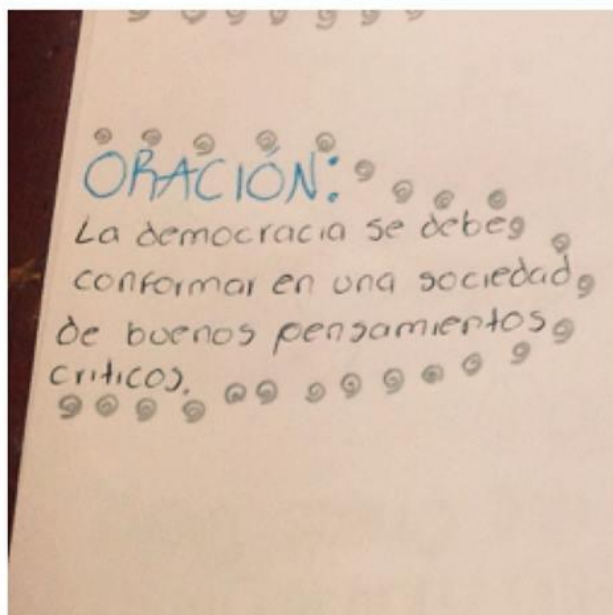 ORACIÓN:
La democracia se debe
conformar en una sociedad
de buenos pensamientos
criticos.